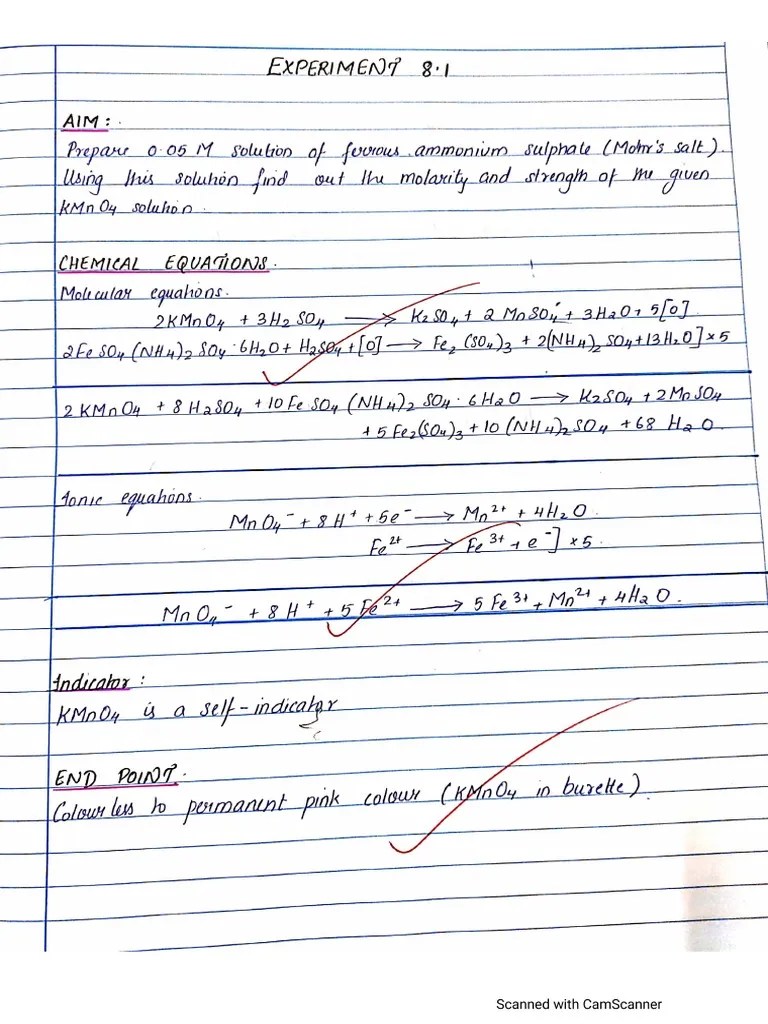 EXPERIMENT 8.1
AIM :
Prepare 0.05 M solution of ferrous ammonium sulphate (Mohr's salt).
Using this solution find out the molarity and strength of the given
KMnO4 solution.
CHEMICAL EQUATIONS.
Molecular equations.
2KMnO4 + 3H2SO4 → K2SO4 + 2MnSO4 + 3H2O + 5[O]
2FeSO4(NH4)2SO4·6H2O + H2SO4 + [O] → Fe2(SO4)3 + 2(NH4)2SO4 + 13H2O] × 5
2KMnO4 + 8H2SO4 + 10FeSO4(NH4)2SO4·6H2O → K2SO4 + 2MnSO4
+ 5Fe2(SO4)3 + 10(NH4)2SO4 + 68H2O.
Ionic equations.
MnO4⁻ + 8H⁺ + 5e⁻ → Mn²⁺ + 4H2O.
Fe²⁺ → Fe³⁺ + e⁻] × 5.
MnO4⁻ + 8H⁺ + 5Fe²⁺ → 5Fe³⁺ + Mn²⁺ + 4H2O.
Indicator :
KMnO4 is a self-indicator
END POINT.
Colourless to permanent pink colour (KMnO4 in burette).
Scanned with CamScanner